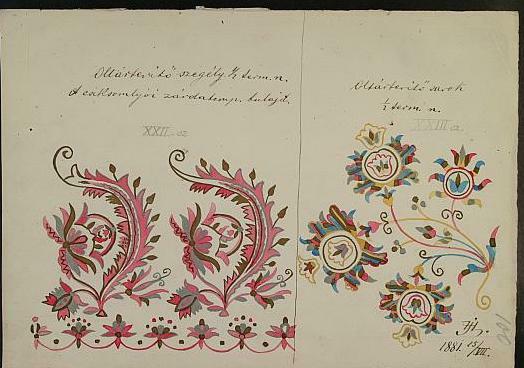 Oltárterítő szegély ½ term. n.
A csiksomlyói zárdatemp. tulajd.
XXII. sz
Oltárterítő sarok
½ term. n.
XXIII a.
JH.
1881. 15/VII.